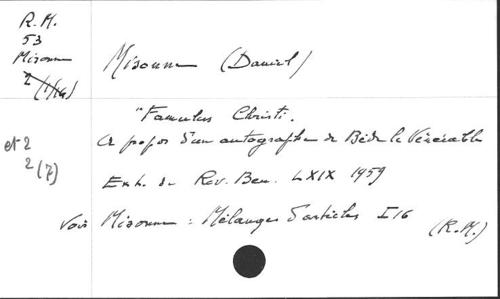 R.M.
53
Misonne
2 (1/16)
Misonne (Daniel)
"Famulus Christi.
A propos d'un autographe de Bède le Vénérable
et 2
2 (7)
Ext. de Rev. Ben. LXIX 1959
Voir Misonne : Mélanges d'articles I 16
(R.M.)